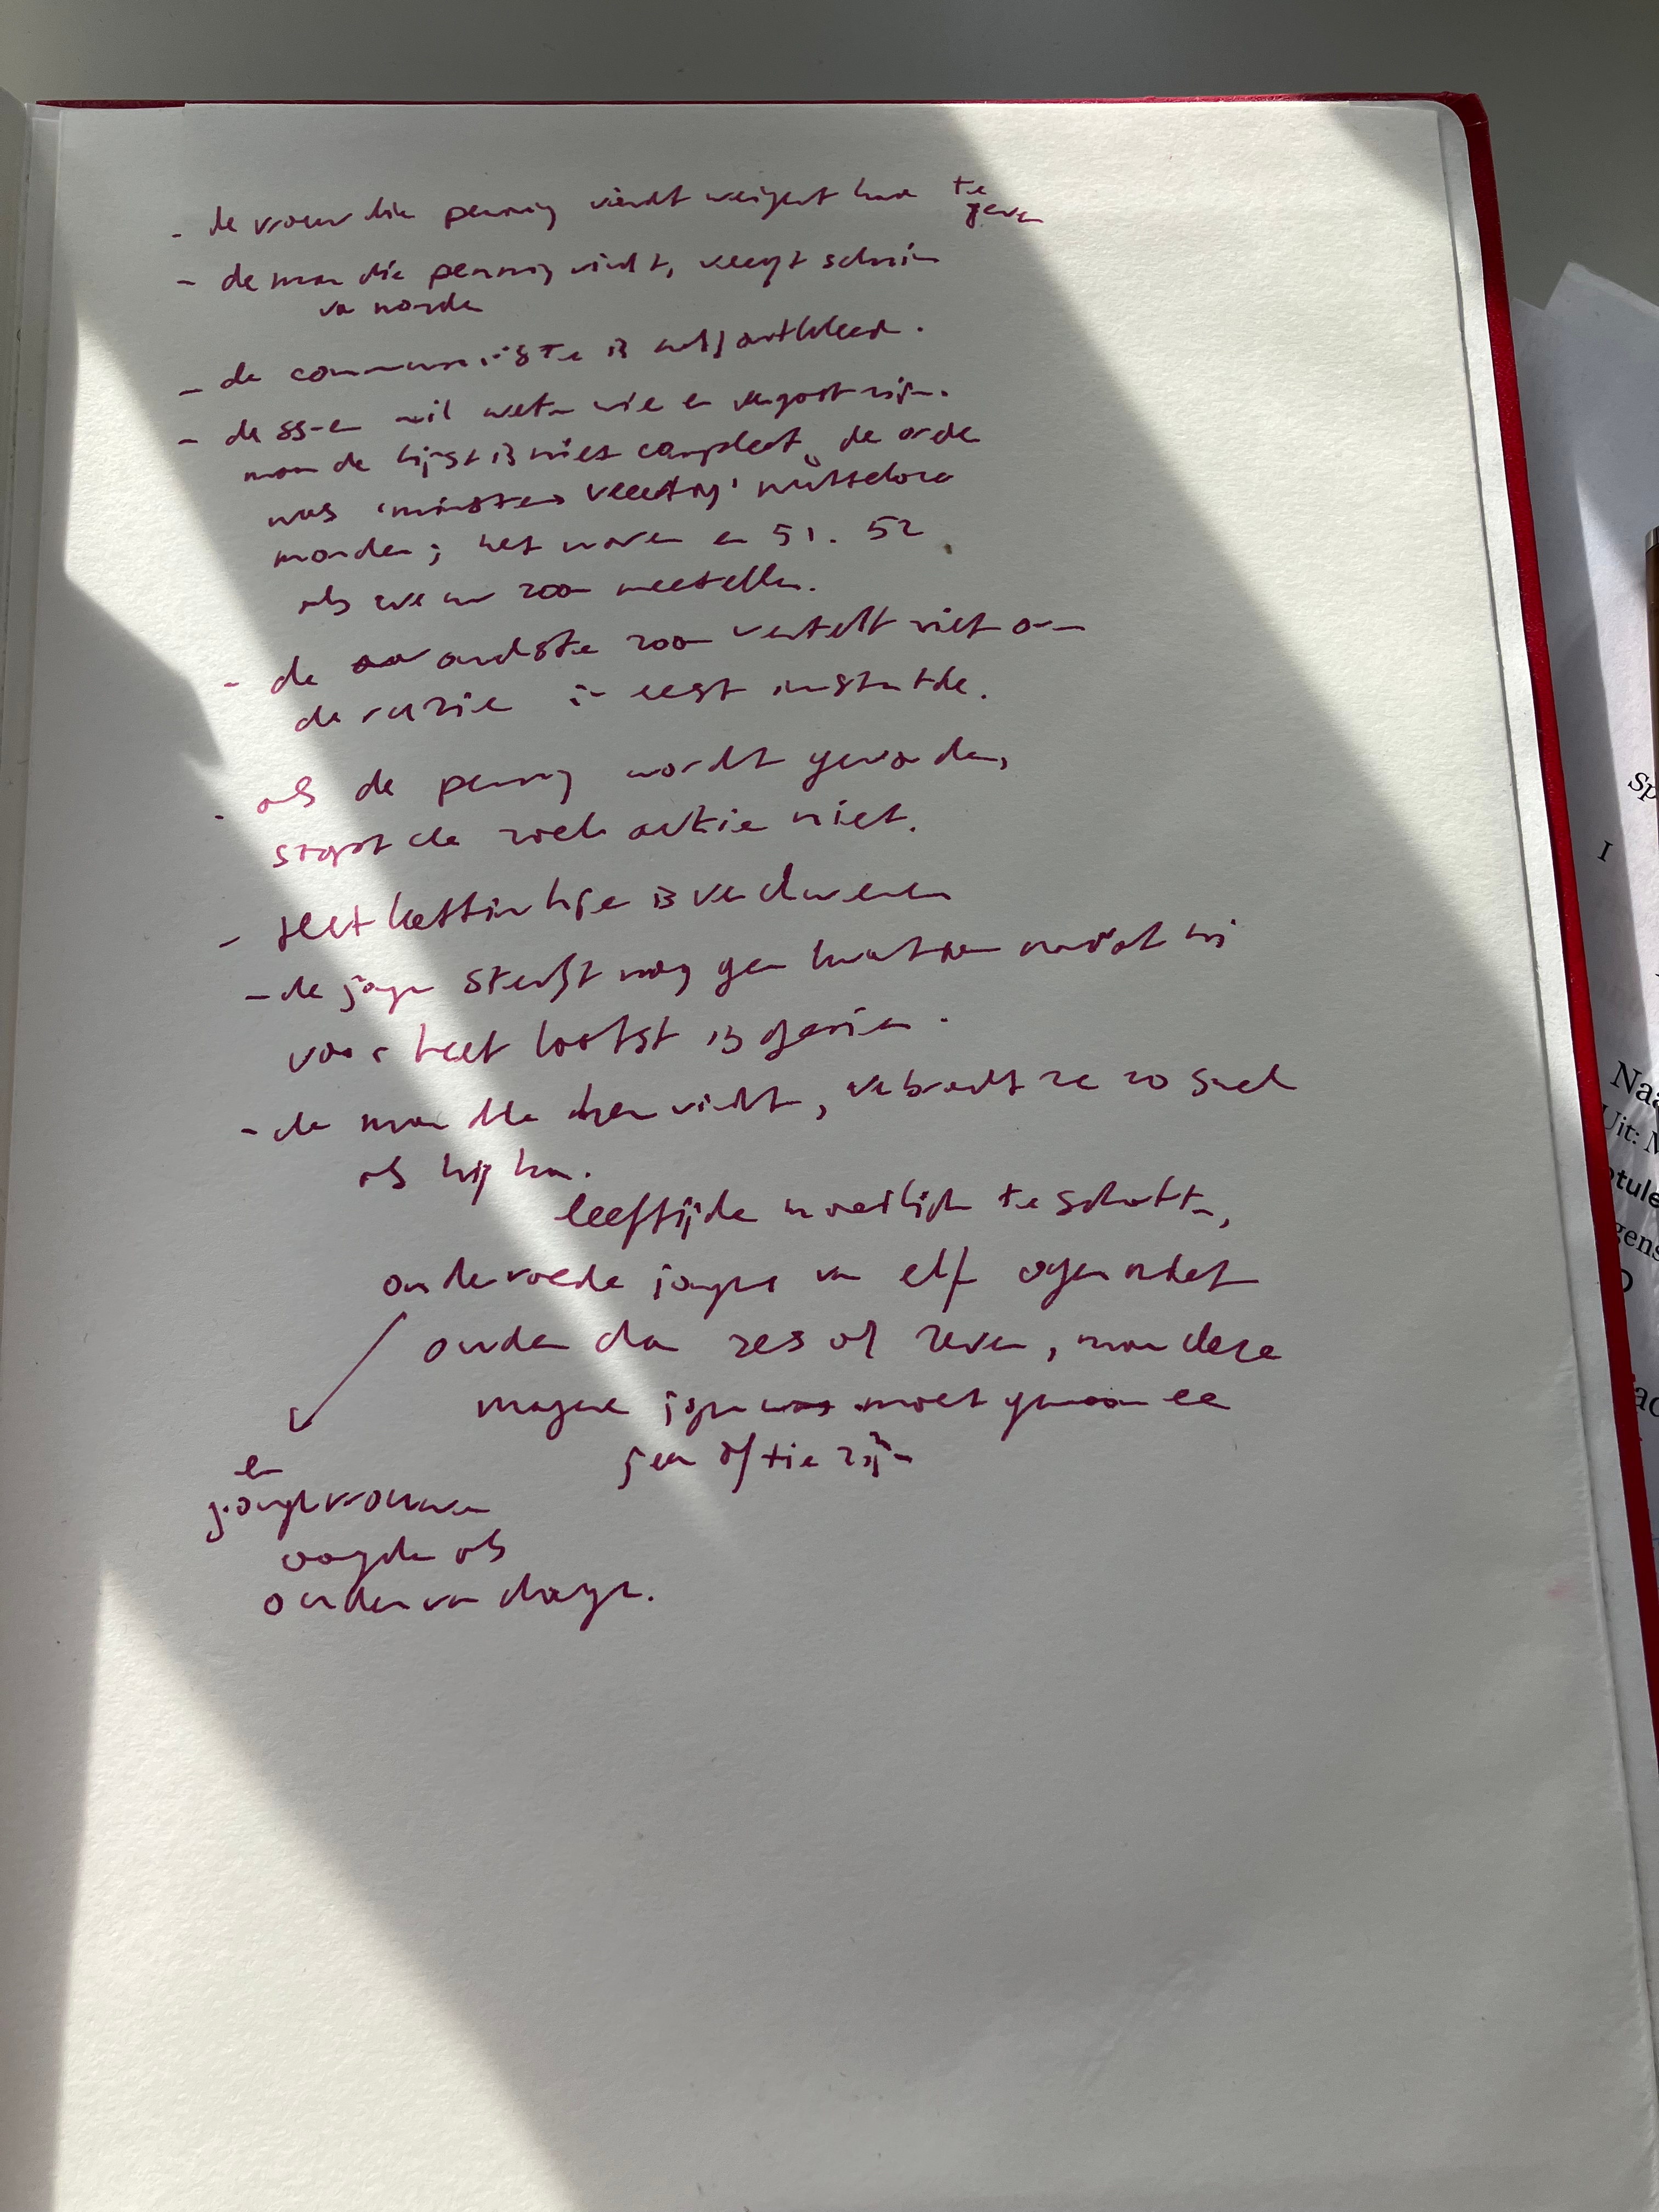 - de vrouw die penning vindt weigert hem te geven
- de man die penning vindt, veegt schoon
van worde
- de communiste is ontkleed.
- de SS-er wil weten wie er vergast zijn.
maar de lijst is niet compleet, de orde
was 'minstens veertig' nutteloze
monden; het waren er 51. 52
als we uw zoon meetellen.
- de oudste zoon vertelt niet over
de ruzie in eest instantie.
- als de penning wordt gevonden,
stopt de zoek aktie niet.
- Het kettinkje is verdwenen
- de jongen sterft nog geen kwartier nadat hij
voor het laatst is gezien.
- de man die hem vindt, verbrandt ze zo snel
als hij kan.
leeftijden moeilijk te schatten,
ondervoede jongens van elf ogen niet
ouder dan zes of zeven, maar deze
magere jongen moet gewoon een
jaar of tien zijn
en
jonge vrouwen
oogden als
ouden van dagen.
Sp
I
Naa
Uit: M
otule
gens